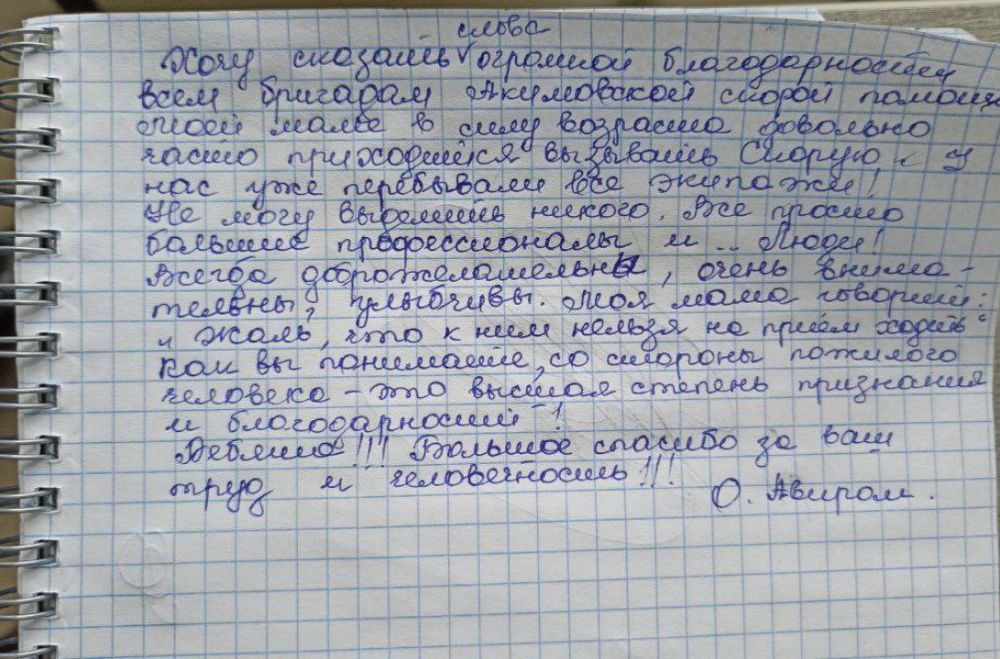 слова
Хочу сказать огромной благодарности
всем бригадам Акумовской скорой помощи
Моей маме в силу возраста довольно
часто приходится вызывать скорую и у
нас уже перебывали все экипажи!
Не могу выделить никого. Все просто
большие профессионалы и... Люди!
Всегда доброжелательны, очень внима-
тельны, улыбчивы. Моя мама говорит:
„Жаль, что к ним нельзя на приём ходить“
Как вы понимаете, со стороны пожилого
человека - это высшая степень признания
и благодарности!
Ребята!!! Большое спасибо за ваш
труд и человечность!!!
О.